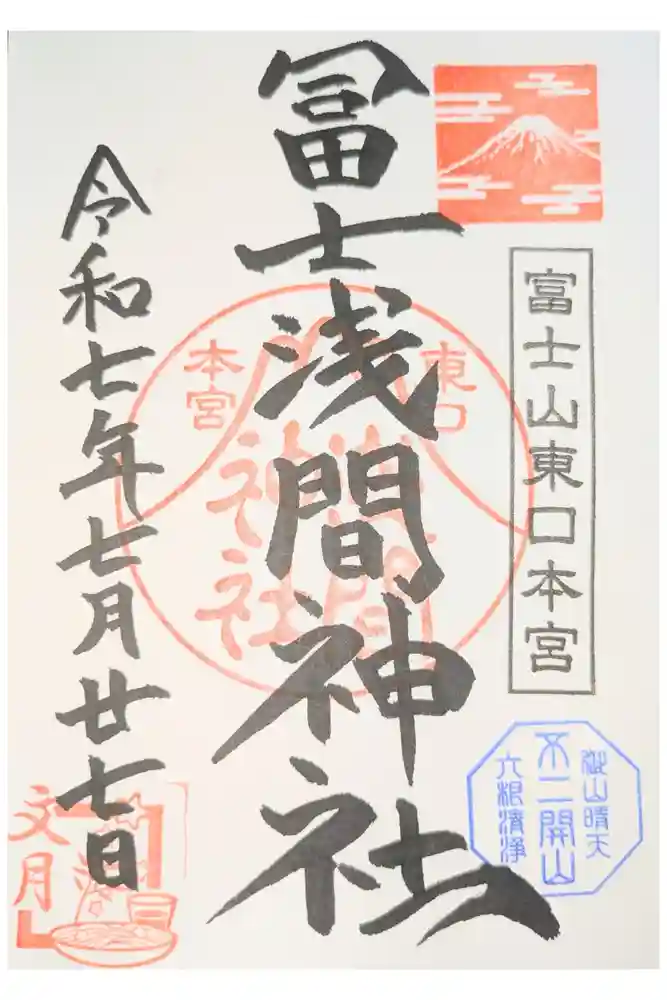 富士山東口本宮
冨士浅間神社
東口
本宮
浅間
神社
令和七年七月廿七日
不二開山
六根清浄
文月